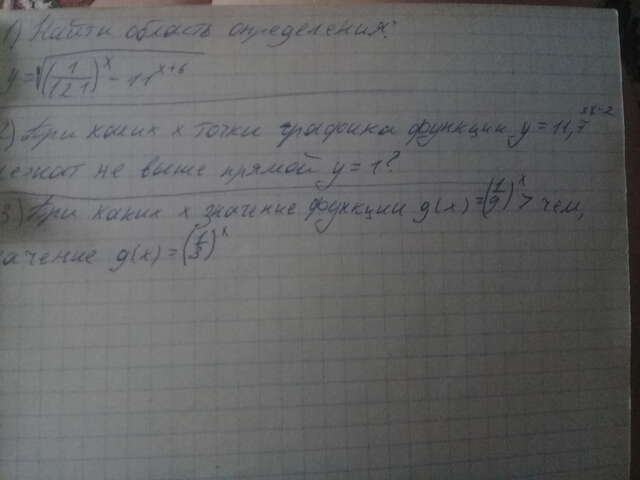 1) Найти область определения:
y=√(1/121)^x - 11^x+6
2) При каких x точки графика функции y=11,7^3x-2
лежат не выше прямой y=1?
3.) При каких x значение функции g(x)=(1/9)^x > чем,
начение g(x)=(1/3)^x